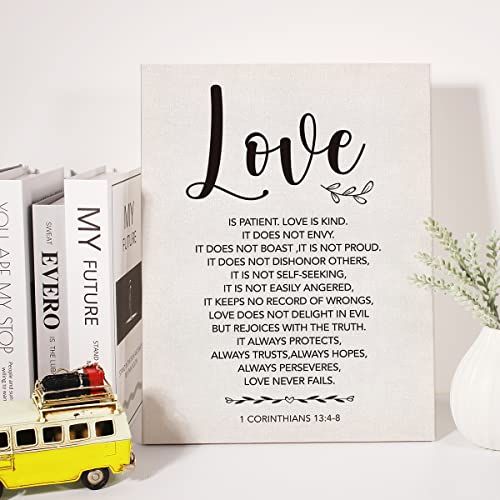 Love
IS PATIENT. LOVE IS KIND.
IT DOES NOT ENVY.
IT DOES NOT BOAST ,IT IS NOT PROUD.
IT DOES NOT DISHONOR OTHERS,
IT IS NOT SELF-SEEKING,
IT IS NOT EASILY ANGERED,
IT KEEPS NO RECORD OF WRONGS,
LOVE DOES NOT DELIGHT IN EVIL
BUT REJOICES WITH THE TRUTH.
IT ALWAYS PROTECTS,
ALWAYS TRUSTS,ALWAYS HOPES,
ALWAYS PERSEVERES,
LOVE NEVER FAILS.
1 CORINTHIANS 13:4-8
YOU ARE MY STOP
SWEAT
EVERO
MY
FUTURE